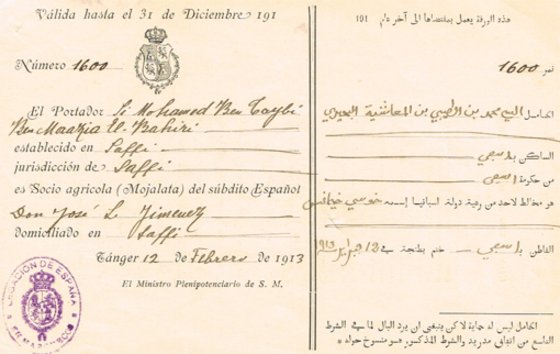 Válida hasta el 31 de Diciembre 191
Número 1600
El Portador Si Mohamed Ben Taybi
Ben Maazia El Bahiri
establecido en Saffi
jurisdicción de Saffi
es Socio agrícola (Mojalata) del súbdito Español
Don José L. Jimenez
domiciliado en Saffi
Tánger 12 de Febrero de 1913
El Ministro Plenipotenciario de S. M.
LEGACIÓN DE ESPAÑA
EN MARRUECOS
هذه الورقة يعمل بمقتضاها الى آخر عام 191
نمر 1600
الحامل السي محمد بن الطيبي بن المعاشية البحيري
الساكن بـ اسفي
من حكومة اسفي
هو مخالط لاحد من رعية دولة اسبانيا اسمه خوسي خيمانيس
القاطن بـ اسفي ختم بطنجة في 12 فبراير 1913
الحامل ليس له حماية لاكن ينبغي ان يرد البال لما في الشرط
التاسع من اتفاق مدريد والشرط المذكور هو منسوخ حوله